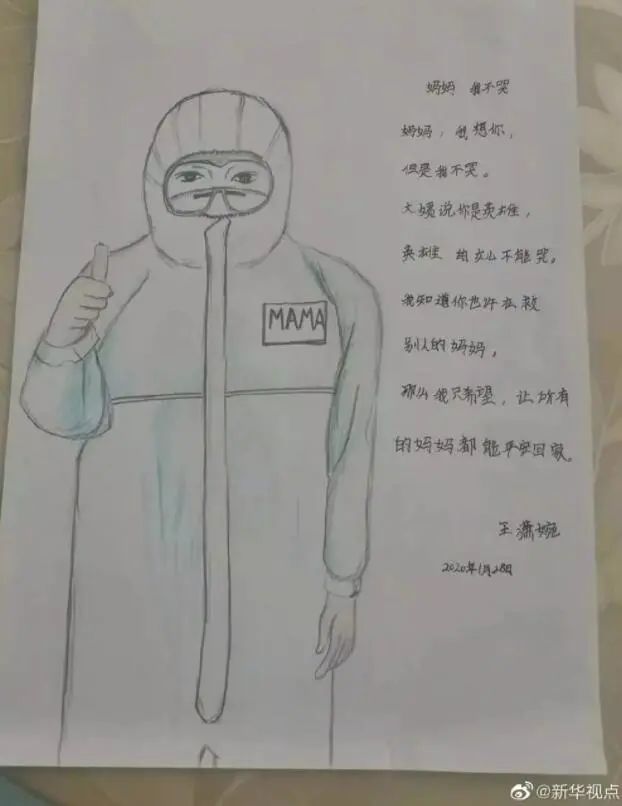 妈妈 我不哭
妈妈，我想你，
但是我不哭。
大姨说你是英雄，
英雄的女儿不能哭。
我知道你也许在救
别人的妈妈，
那么我只希望，让所有
的妈妈都能平安回家。
王潇婉
2020年1月28日
MAMA
@新华视点